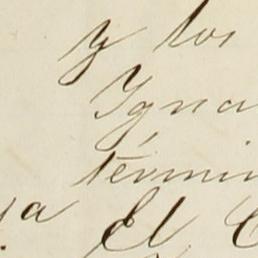 y los
Igna
términ
ya El C